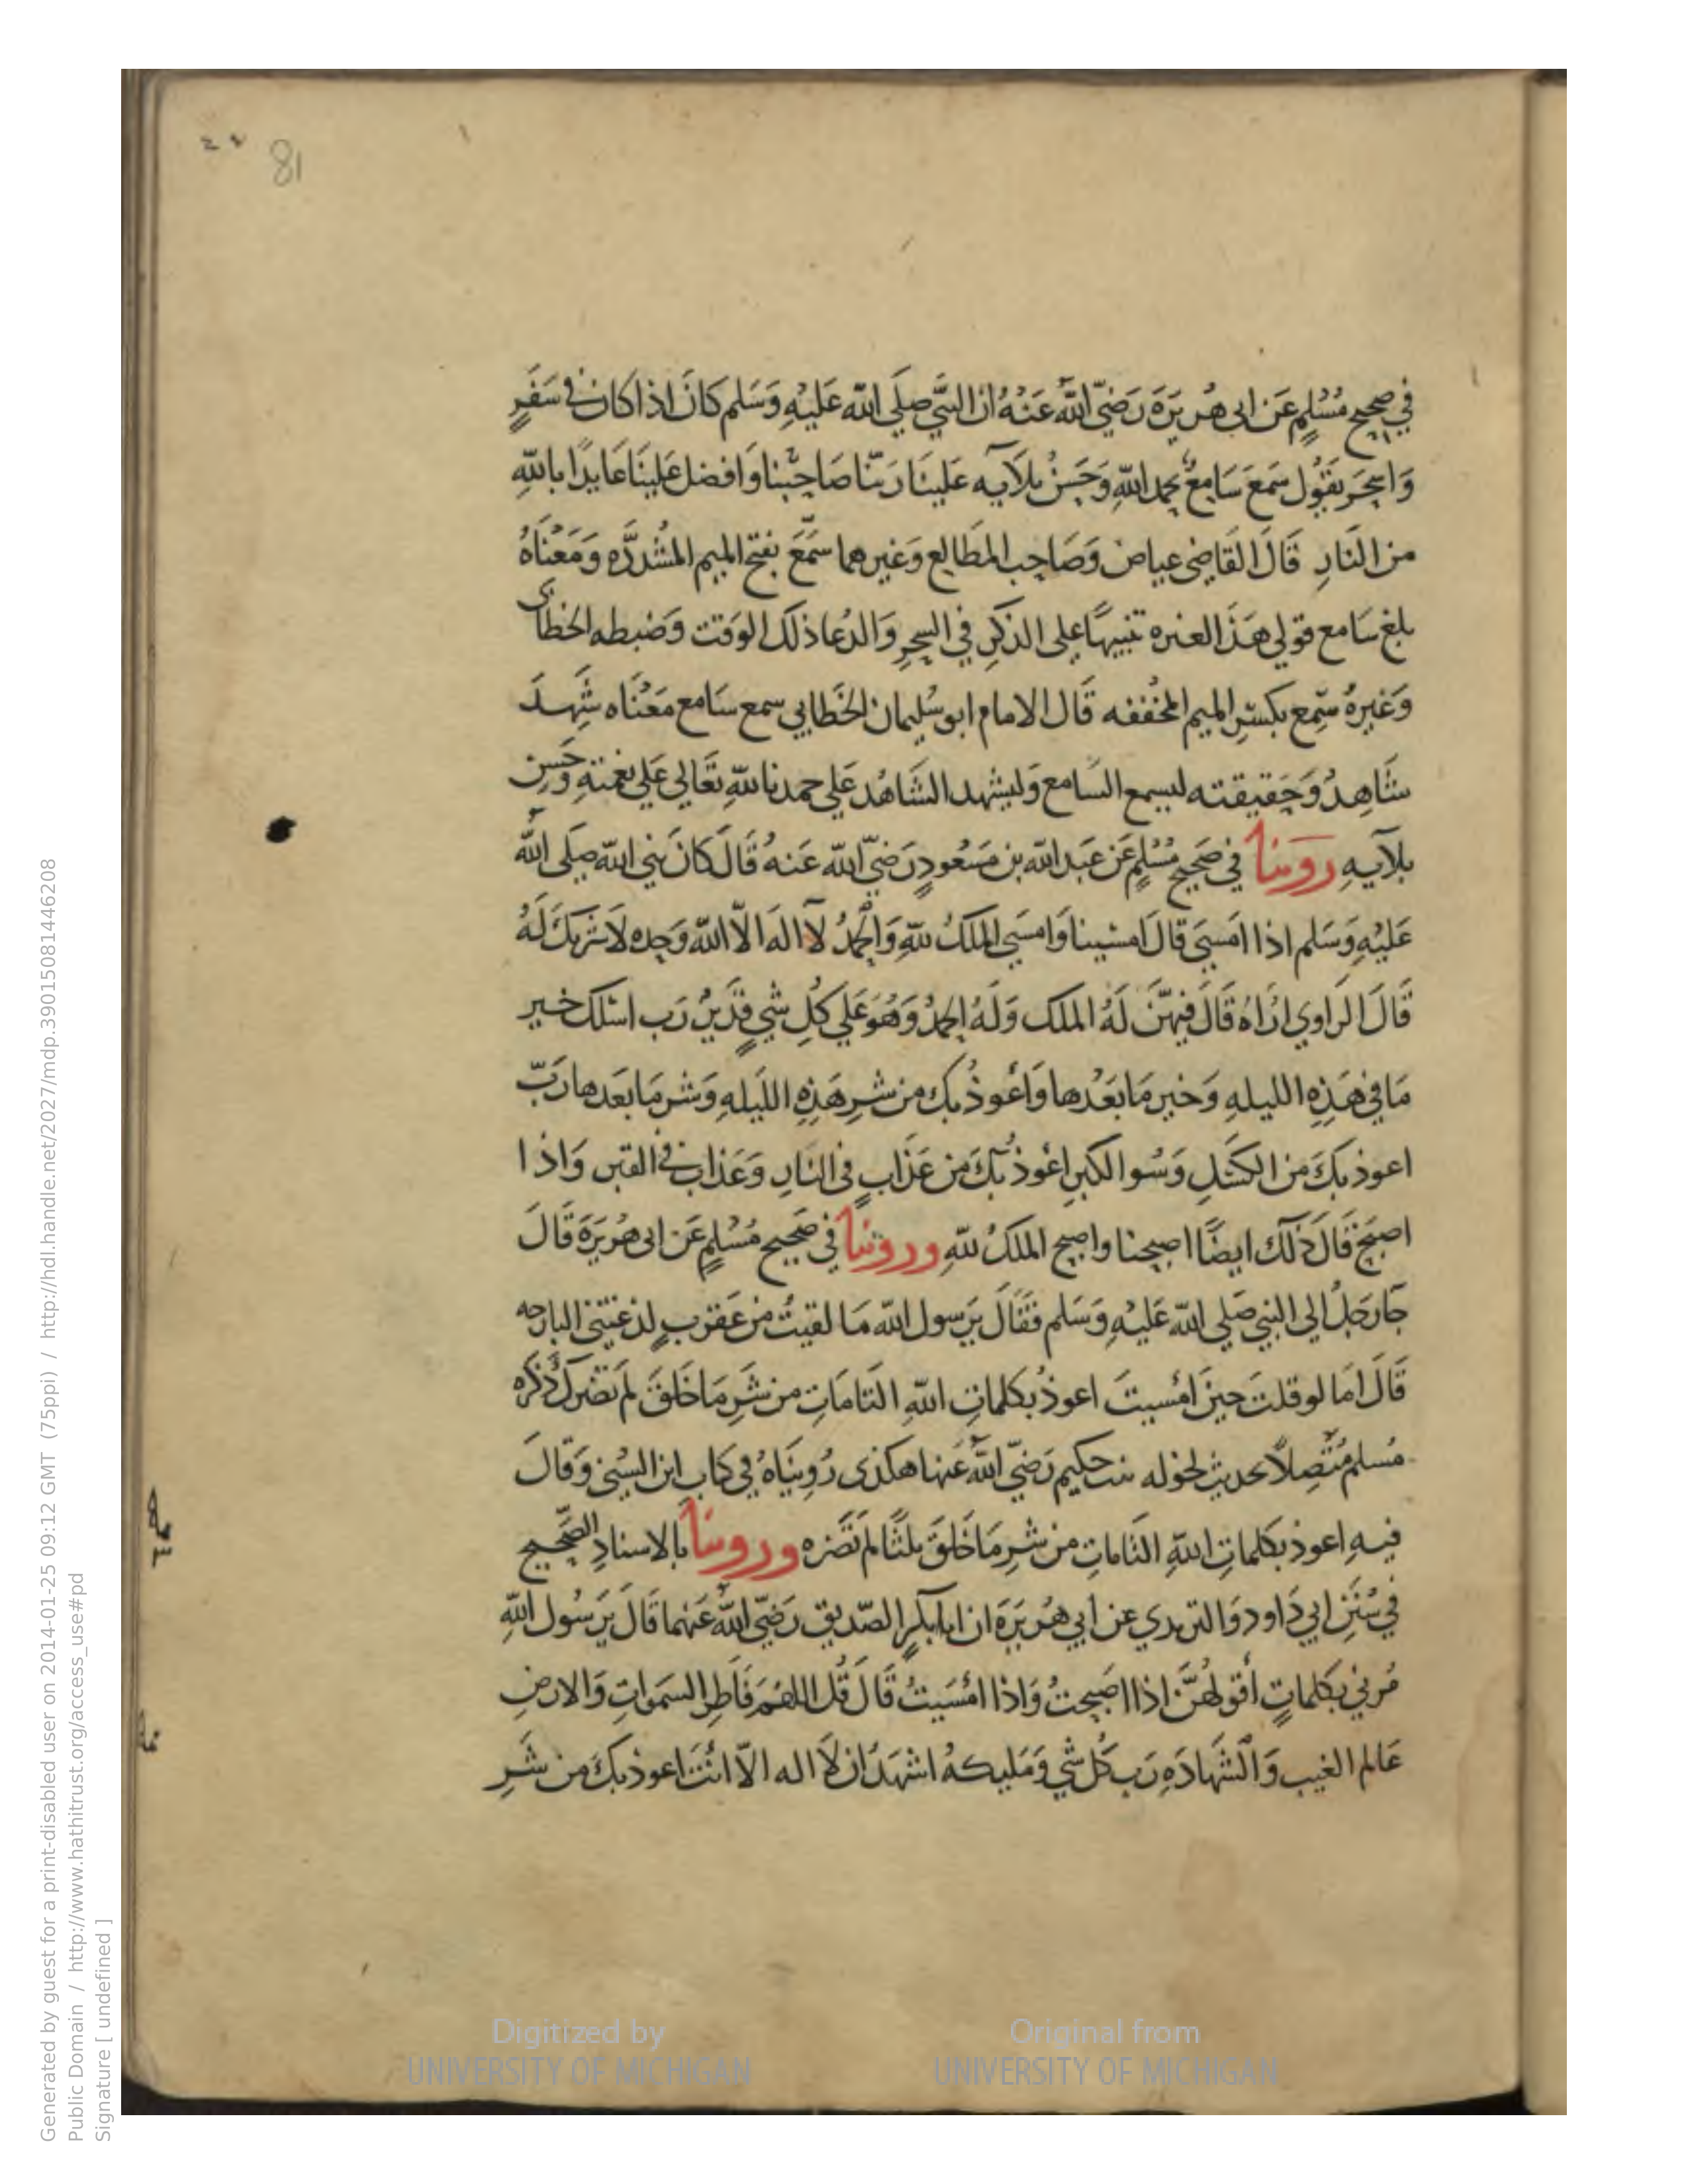 81
في صحيح مُسْلمٍ عَن ابى هُريَرَة رَضيّ اللّه عَنْهُ ان النبَّي صلي اللّه عَليْهِ وَسَلم كانَ اذا كان في سَفَرٍ
وَاسحَر يَقُول سَمعَ سَامِعٌ بحمد اللّهِ وَحسَنُ بلآيه عَلينَا رَبنّا صَاحِبْنا وَافضل عَلينَا عَايدًا باللّهِ
من النَارِ قَالَ القَاضى عياض وَصَاحِب المطَالِع وَغيرهما سَمَّعَ بفتح الميم المشُدَّده وَمَعْنَاهُ
بلغ سَامع قولي هَذَ العنره تنبيهًا على الذكرِ في السحرِ وَالدُعا ذلك الوَقت وَضبطه الخطاى
وَغيرهُ سَمِع بكسْرِ الميم المخففه قَال الامام ابو سُليمان الخَطابي سمع سَامع مَعْنَاه شَهِدَ
شَاهِدٌ وَحَقيقته ليسمع السَامع وَليشهد الشَاهدْ عَلي حمدنا للّهِ تعَالي عَلي نعمتهِ وَحسن
بلآيهِ روينا في صَحيحِ مُسْلمٍ عَن عَبد اللّه بن مَسَعودٍ رَضيّ اللّه عَنهُ قَالَ كانَ نبي اللّه صلَى اللّه
عَليْهِ وَسَلم اذا امَسىَ قالَ امسْينا وَامسَي الملكُ للّهِ وَالحمْدُ لآ اله الاّ اللّه وَحده لاَ شرَيكَ لَهُ
قَالَ الرَاوي ارَاهُ قَالَ فيهنَّ لَهُ الملك وَلَهُ الحمدُ وَهُوَ عَلي كُلِ شَيٍ قدَيرٌ رَب اسئلك خير
مَا في هَذِهِ الليلهِ وَخير مَا بَعْدها وَأعوذُ بك من شرِ هَذِهِ الليَلهِ وَشرِ مَا بَعَدها رَبّ
اعوذ بكَ من الكسَلِ وَسُو الكبرِ اعُوذ بكَ من عَذَابٍ فى النَارِ وَعَذاب في القبر وَاذا
اصبَحَ قَالَ ذَلك ايضًا اصبحنا واصبح الملكُ للّهِ وروُيناَ في صَحيح مُسْلمٍ عَن ابى هُريَرَة قَالَ
جَا رَجَلُ الى النبي صَلي اللّه عَليْهِ وَسَلم فَقَالَ يَرسول اللّه مَا لقيتُ من عَقربٍ لذغتنى البارحه
قَالَ امَا لو قلتَ حينَ امْسيتَ اعوذُ بكلماتِ اللّهِ التَامَاتِ من شَرِ مَا خَلقَ لم تضرك ذكَره
مُسلم مُتَّصِلاً بحديث لخوله بنت حكيم رَضيّ اللّه عَنها هكذى رُوينَاهُ في كتاب ابن السُنى وَقالَ
فيهِ اعوذ بكلماتِ اللّهِ التَاماتِ من شرِ مَا خَلقَ ثلثًا لم تَضره وروينا بالاسنادِ الصَّحيح
في سُنَنِ ابي دَاود وَالترمدي عن ابي هُريَرَة ان ابا بكرٍ الصّديق رَضيّ اللّه عَنهما قَالَ يَرسُول اللّهِ
مُرني بكلماتٍ أقولهُنَّ اذا اصَبحتُ وَاذا امْسَيتُ قَالَ قُل اللهُمَ فَاطِر السمَواتِ وَالارضِ
عَالم الغيب وَالشَهادَهِ رَب كُل شَي وَمَليكهُ اشهَدُ ان لاَ اله الاّ انْتَ اعوذ بكَ من شَرِ
Generated by guest for a print-disabled user on 2014-01-25 09:12 GMT (75ppi) / http://hdl.handle.net/2027/mdp.39015081446208
Public Domain / http://www.hathitrust.org/access_use#pd
Signature [ undefined ]
Digitized by
UNIVERSITY OF MICHIGAN
Original from
UNIVERSITY OF MICHIGAN